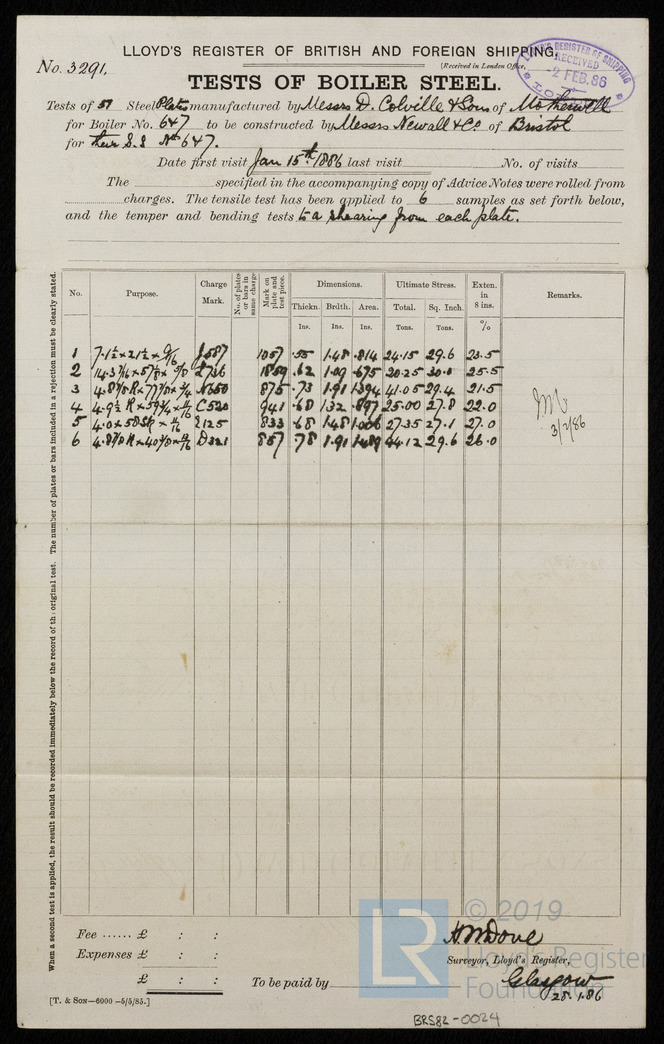 LLOYD'S REGISTER OF BRITISH AND FOREIGN SHIPPING,
No. 3291,
[Received in London Office,
LLOYD'S REGISTER OF SHIPPING
RECEIVED
2 FEB. 86
TESTS OF BOILER STEEL.
Tests of 51 Steel Plates manufactured by Messrs D. Colville & Sons of Motherwell
for Boiler No. 647 to be constructed by Messrs Newall & Co of Bristol
for their S.S No 647.
Date first visit Jan 15th/1886 last visit No. of visits
The specified in the accompanying copy of Advice Notes were rolled from
charges. The tensile test has been applied to 6 samples as set forth below,
and the temper and bending tests to a shearing from each plate.
When a second test is applied, the result should be recorded immediately below the record of the original test. The number of plates or bars included in a rejection must be clearly stated.
No. Purpose. Charge Mark. No. of plates or bars in same charge Mark on plate and test piece. Dimensions. Ultimate Stress. Exten. in 8 ins. Remarks.
Thickn. Brdth. Area. Total. Sq. Inch. %
Ins. Ins. Ins. Tons. Tons.
1 7.1½ x 21½ x 9/16 1057 .55 1.48 .814 24.15 29.6 23.5
2 1859 .62 1.09 .675 20.25 30.0 25.5
3 875 .73 1.91 1.394 41.05 29.4 21.5
4 4.9½ R x 59¼ x 11/16 C520 941 .68 1.32 .897 25.00 27.8 22.0
5 833 .68 1.48 1.006 27.35 27.1 27.0
6 D321 857 .78 1.91 1.489 44.12 29.6 26.0
3/2/86
Fee ...... £ : :
Expenses £ : :
£ : :
To be paid by
H. M Dove
Surveyor, Lloyd's Register,
Glasgow
28.1.86
[T. & SON—6000 —5/5/85.]
LR
© 2019
Lloyd's Register
Foundation
BRS82-0024